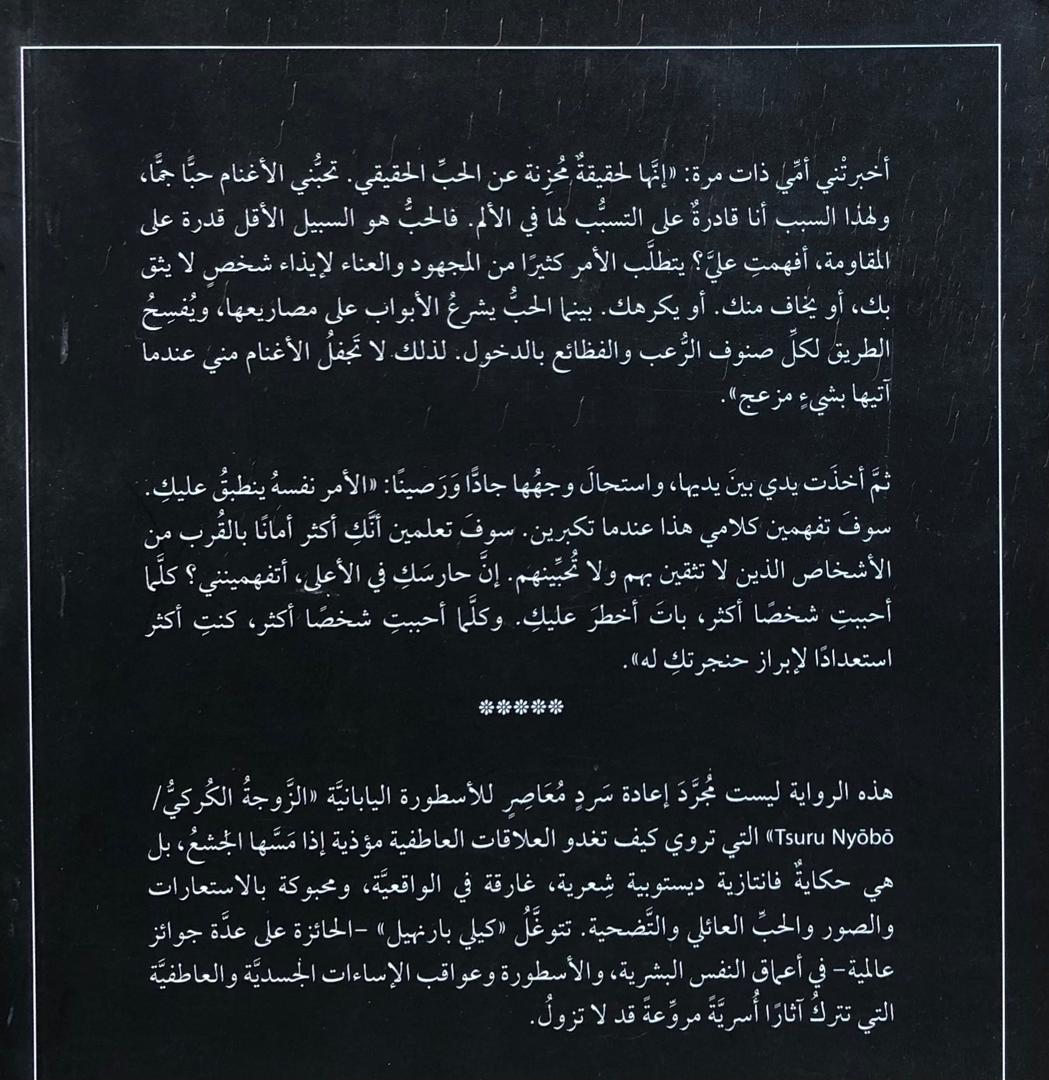 أخبرتْني أمِّي ذات مرة: «إنَّها لحقيقةٌ مُحزِنة عن الحبِّ الحقيقي. تحبُّني الأغنام حبًّا جمًّا،
ولهذا السبب أنا قادرةٌ على التسبُّب لها في الألم. فالحبُّ هو السبيل الأقل قدرة على
المقاومة، أفهمتِ عليَّ؟ يتطلَّب الأمر كثيرًا من المجهود والعناء لإيذاء شخصٍ لا يثق
بك، أو يخاف منك. أو يكرهك. بينما الحبُّ يشرعُ الأبواب على مصاريعها، ويُفسِحُ
الطريق لكلِّ صنوف الرُّعب والفظائع بالدخول. لذلك لا تَجفلُ الأغنام مني عندما
آتيها بشيءٍ مزعج».
ثمَّ أخذَت يدي بينَ يديها، واستحالَ وجهُها جادًّا وَرَصينًا: «الأمر نفسهُ ينطبقُ عليكِ.
سوفَ تفهمين كلامي هذا عندما تكبرين. سوفَ تعلمين أنَّكِ أكثر أمانًا بالقُرب من
الأشخاص الذين لا تثقين بهم ولا تُحبِّينهم. إنَّ حارسَكِ في الأعلى، أتفهمينني؟ كلَّما
أحببتِ شخصًا أكثر، باتَ أخطرَ عليكِ. وكلَّما أحببتِ شخصًا أكثر، كنتِ أكثر
استعدادًا لإبراز حنجرتكِ له».
❊❊❊❊❊
هذه الرواية ليست مُجرَّدَ إعادة سَردٍ مُعَاصِرٍ للأسطورة اليابانيَّة «الزَّوجةُ الكُركيُّ/
Tsuru Nyōbō» التي تروي كيف تغدو العلاقات العاطفية مؤذية إذا مَسَّها الجَشعُ، بل
هي حكايةٌ فانتازية ديستوبية شِعرية، غارقة في الواقعيَّة، ومحبوكة بالاستعارات
والصور والحبِّ العائلي والتَّضحية. تتوغَّلُ «كيلي بارنهيل» –الحائزة على عدَّة جوائز
عالمية– في أعماق النفس البشرية، والأسطورة وعواقب الإساءات الجسديَّة والعاطفيَّة
التي تتركُ آثارًا أُسريَّةً مروِّعةً قد لا تزولُ.